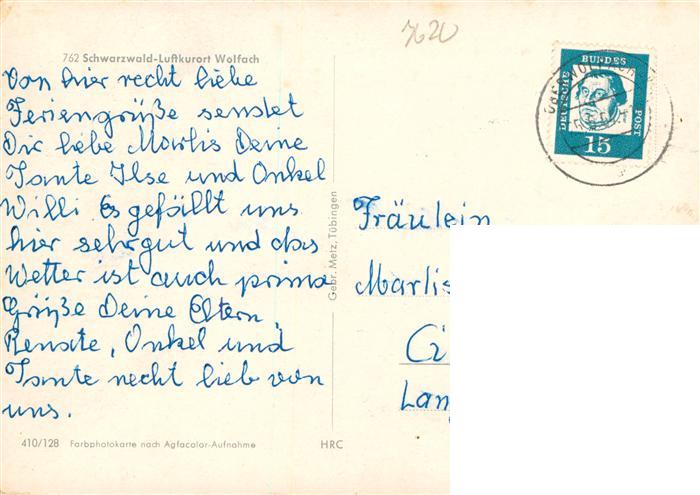 7620
762 Schwarzwald-Luftkurort Wolfach
Von hier recht liebe
Feriengrüße sendet
Dir liebe Marlis Deine
Tante Ilse und Onkel
Willi Es gefällt uns
hier sehr gut und das
Wetter ist auch prima
Grüße Deine Eltern,
Renate, Onkel und
Tante recht lieb von
uns.
410/128 Farbphotokarte nach Agfacolor-Aufnahme
HRC
Gebr. Metz, Tübingen
DEUTSCHE
BUNDES
POST
15
Fräulein
Marlis